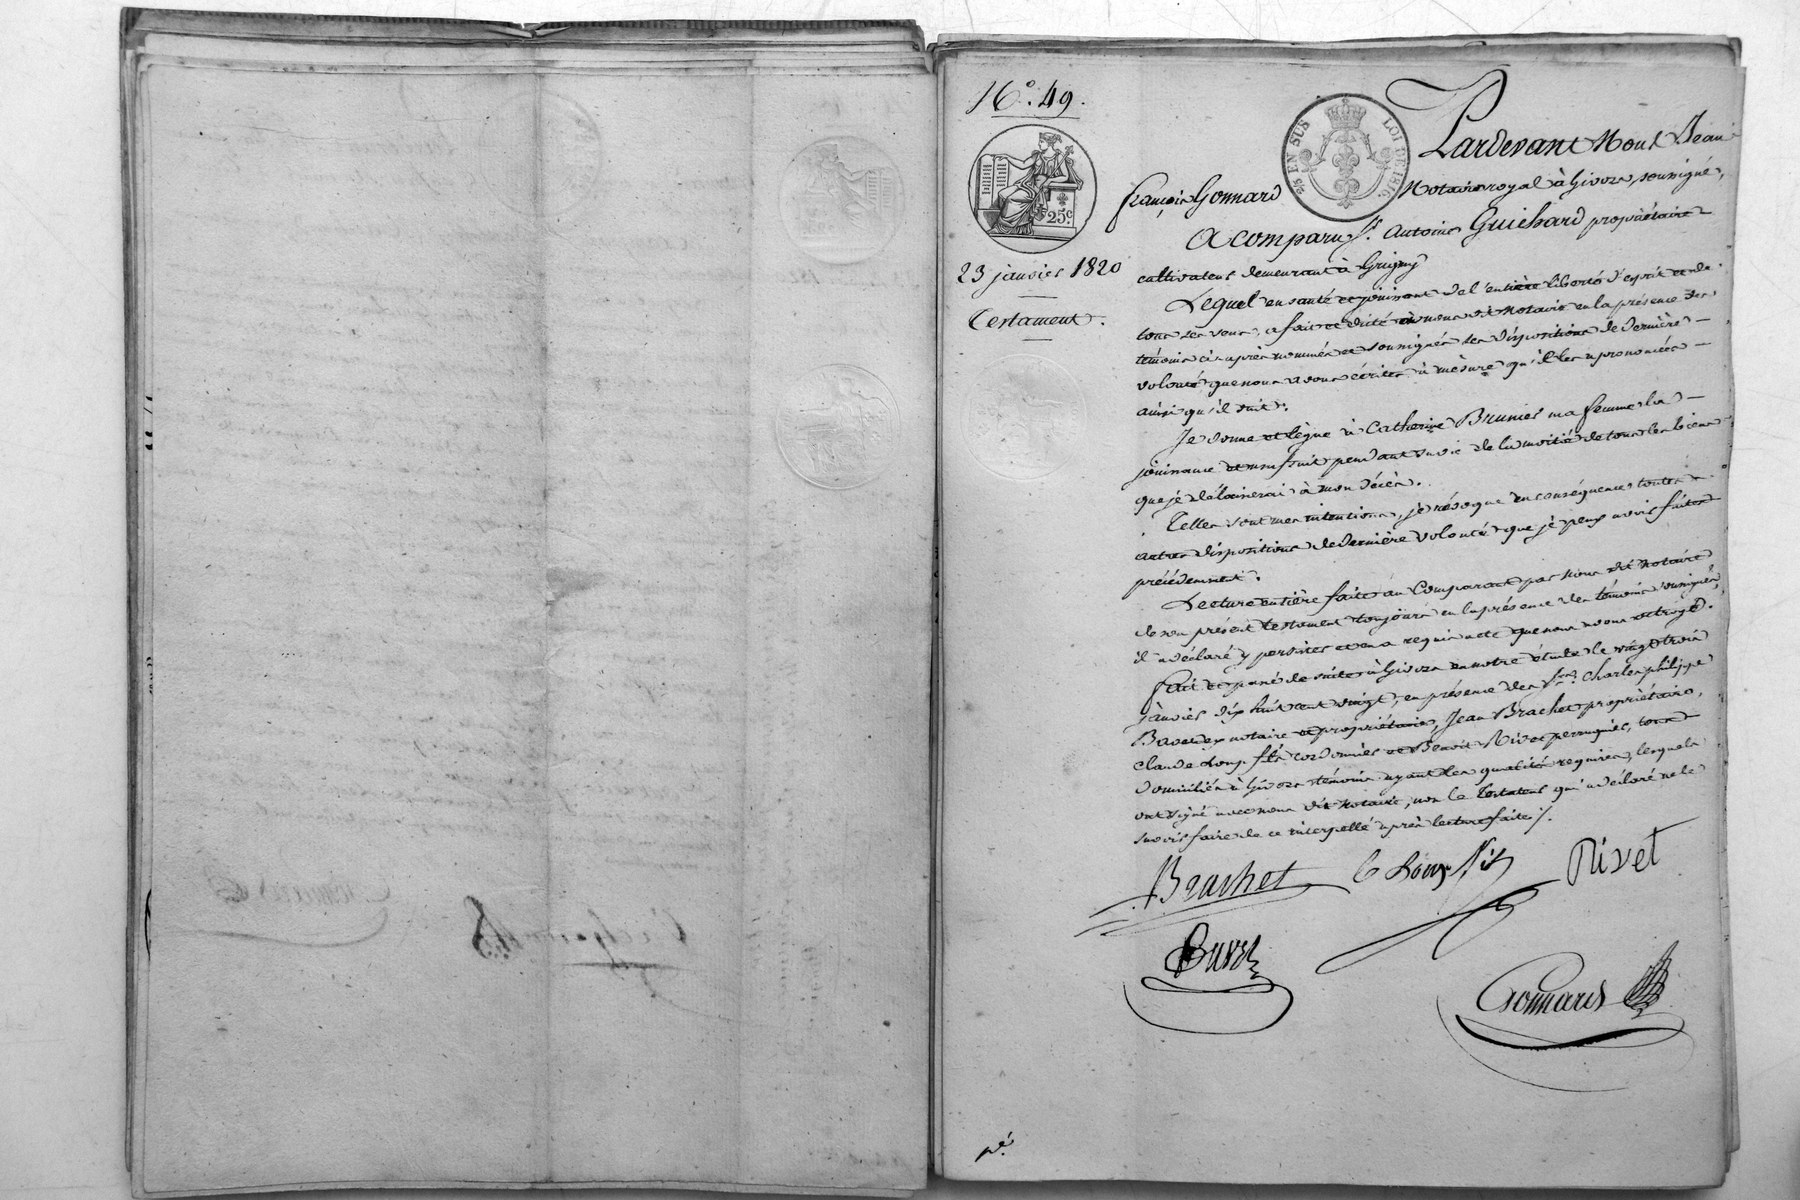 N°. 49.
25 EN SUS LOI DE 1816
25c
Pardevant Nous Jean
françois Gonnard Notaire royal à Givors, soussigné,
A comparu Sr. Antoine Guichard propriétaire
23 janvier 1820
cultivateur demeurant à Grigny
Testament.
Lequel en santé et jouissant de l'entière liberté d'esprit et de
tous ses sens, a fait et dicté à nous dit Notaire en la présence des
témoins ci-après nommés et soussignés ses dispositions de dernière
volonté que nous avons écrites à mesure qu'il les a prononcées
ainsi qu'il suit.
Je donne et lègue à Catherine Brunier ma femme la
jouissance et usufruit pendant sa vie de la moitié de tous les biens
que je délaisserai à mon décès.
Telles sont mes intentions, je révoque en conséquence toutes
autres dispositions de dernière volonté que je peux avoir faites
précédemment.
Lecture entière faite au Comparant par Nous dit notaire
de son présent testament toujours en la présence des témoins soussignés,
il a déclaré y persister et en a requis acte que nous avons octroyé.
fait et passé de suite à Givors en notre étude le vingt trois
janvier dix huit cent vingt, en présence des Srs. Charles philippe
notaire et propriétaire, Jean Brachet propriétaire,
Claude Loup fils cordonnier et Benoit Rivet perruquier, tous
domiciliés à Givors témoins ayant les qualités requises, lesquels
ont signé avec nous dit Notaire, non le Testateur qui a déclaré ne le
savoir faire de ce interpellé après lecture faite /.
Brachet C Loup fils Rivet
Gonnard